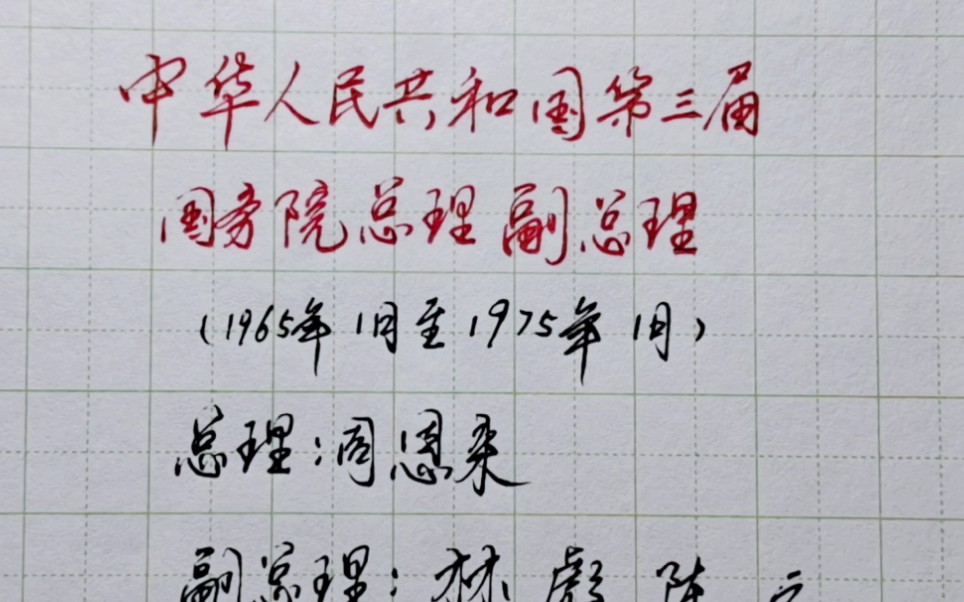 中华人民共和国第三届
国务院总理副总理
（1965年1月至1975年1月）
总理：周恩来
副总理：林彪 陈云